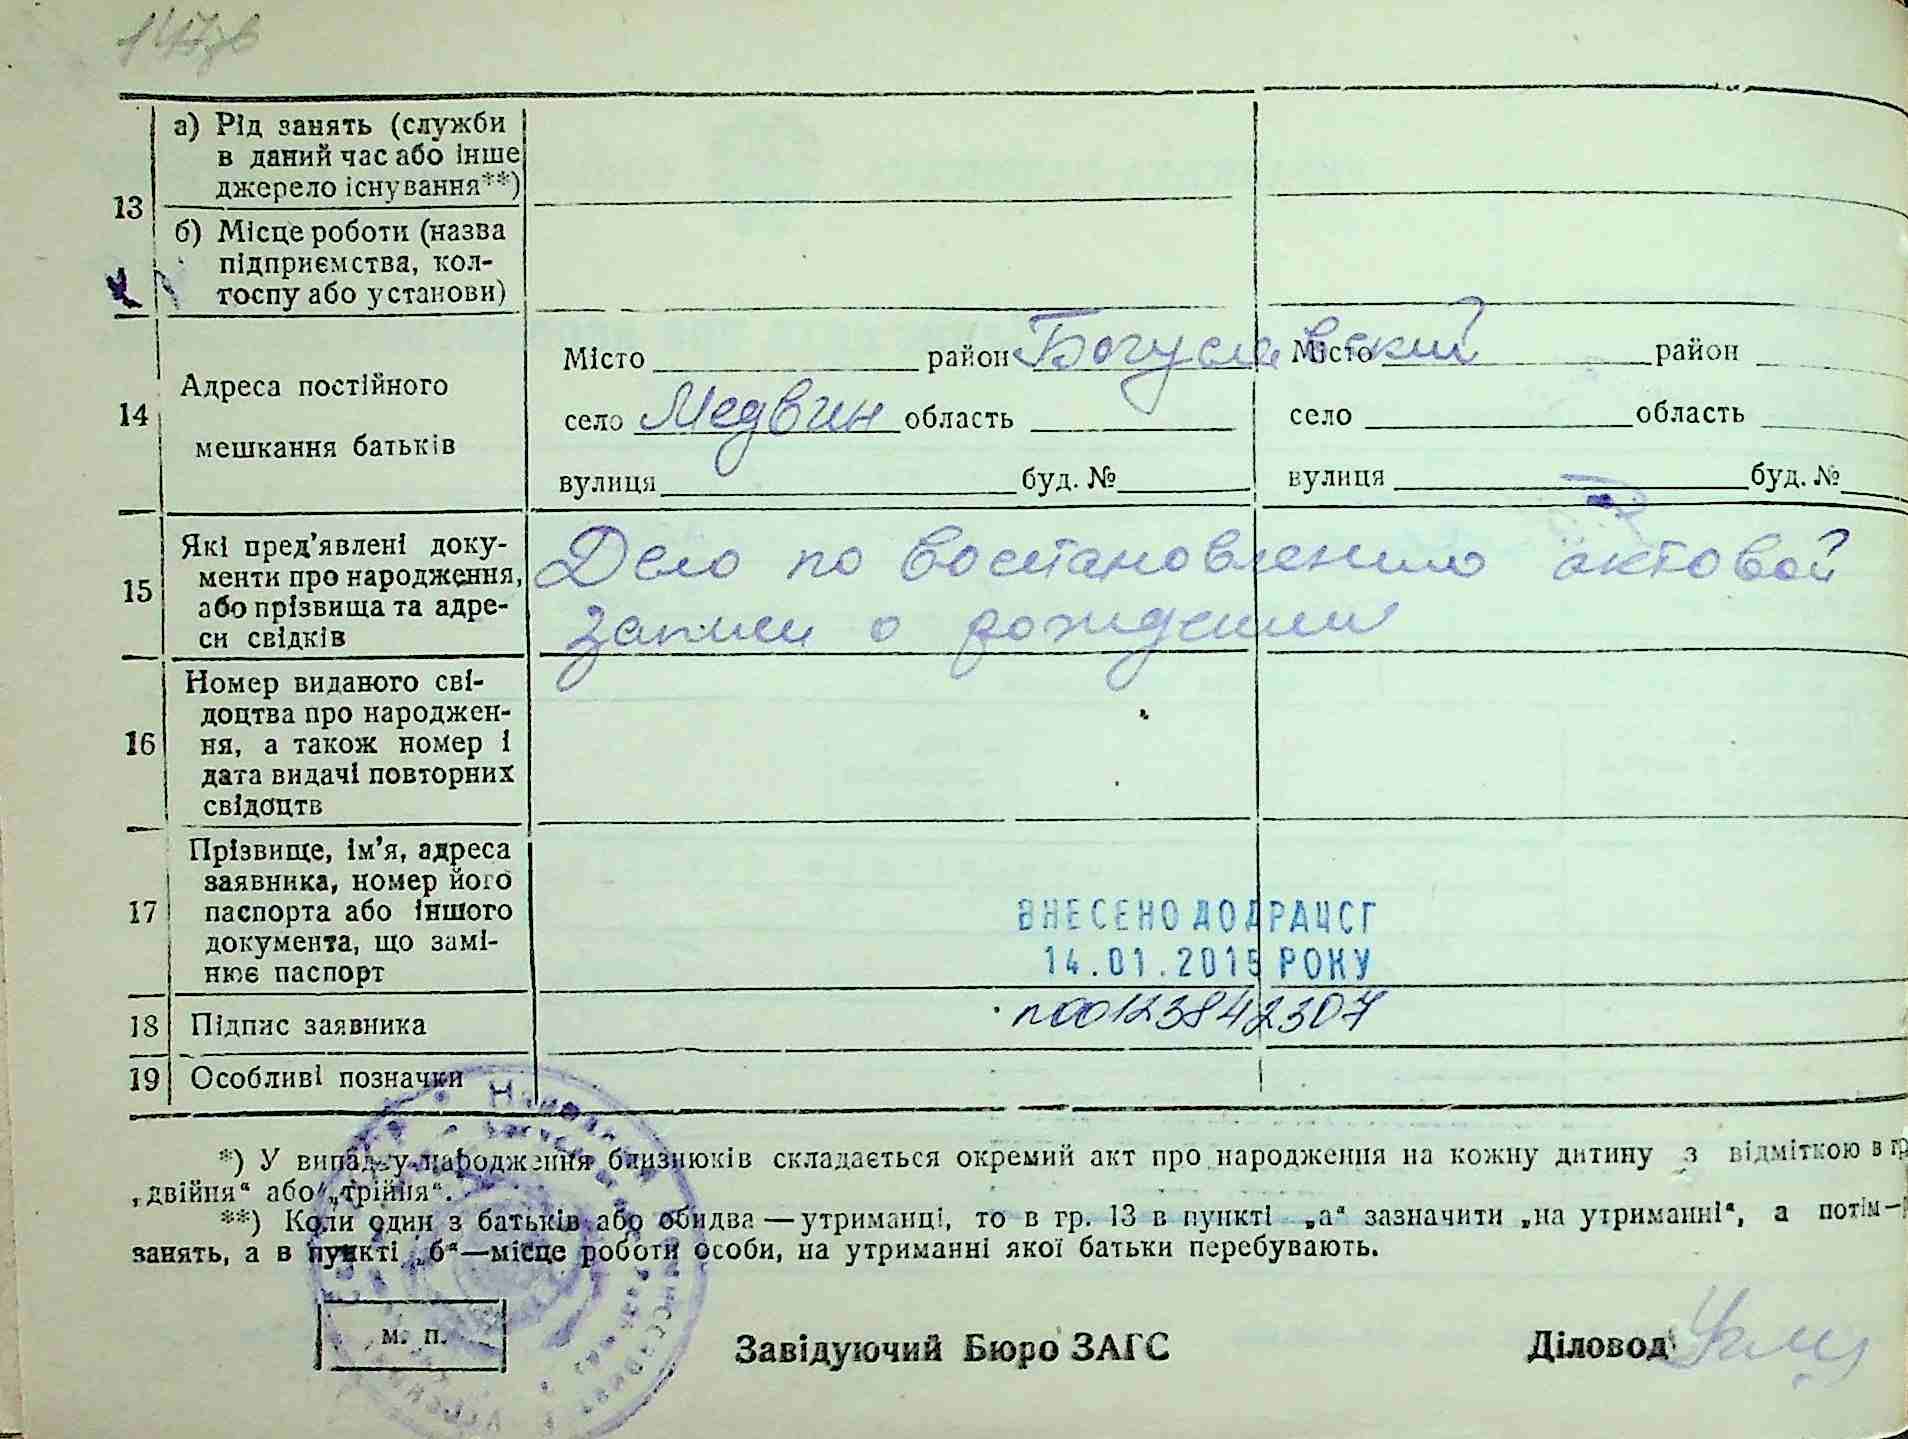 147зв
13
а) Рід занять (служби
в даний час або інше
джерело існування**)
б) Місце роботи (назва
підприємства, кол-
госпу або установи)
14
Адреса постійного
мешкання батьків
Місто район Богуславский Місто район
село Медвин область село область
вулиця буд. № вулиця буд. №
15
Які пред'явлені доку-
менти про народження,
або прізвища та адре-
си свідків
Дело по востановлению актовой
записи о рождении
16
Номер виданого сві-
доцтва про народжен-
ня, а також номер і
дата видачі повторних
свідоцтв
17
Прізвище, ім'я, адреса
заявника, номер його
паспорта або іншого
документа, що замі-
нює паспорт
ВНЕСЕНО ДО ДРАЦСГ
14.01.2015 РОКУ
18 Підпис заявника
п00123842307
19 Особливі позначки
*) У випадку народження близнюків складається окремий акт про народження на кожну дитину з відміткою в гр
„двійня“ або „трійня“.
**) Коли один з батьків або обидва—утриманці, то в гр. 13 в пункті „а“ зазначити „на утриманні“, а потім—
занять, а в пункті „б“—місце роботи особи, на утриманні якої батьки перебувають.
м. п.
Завідуючий Бюро ЗАГС Діловод